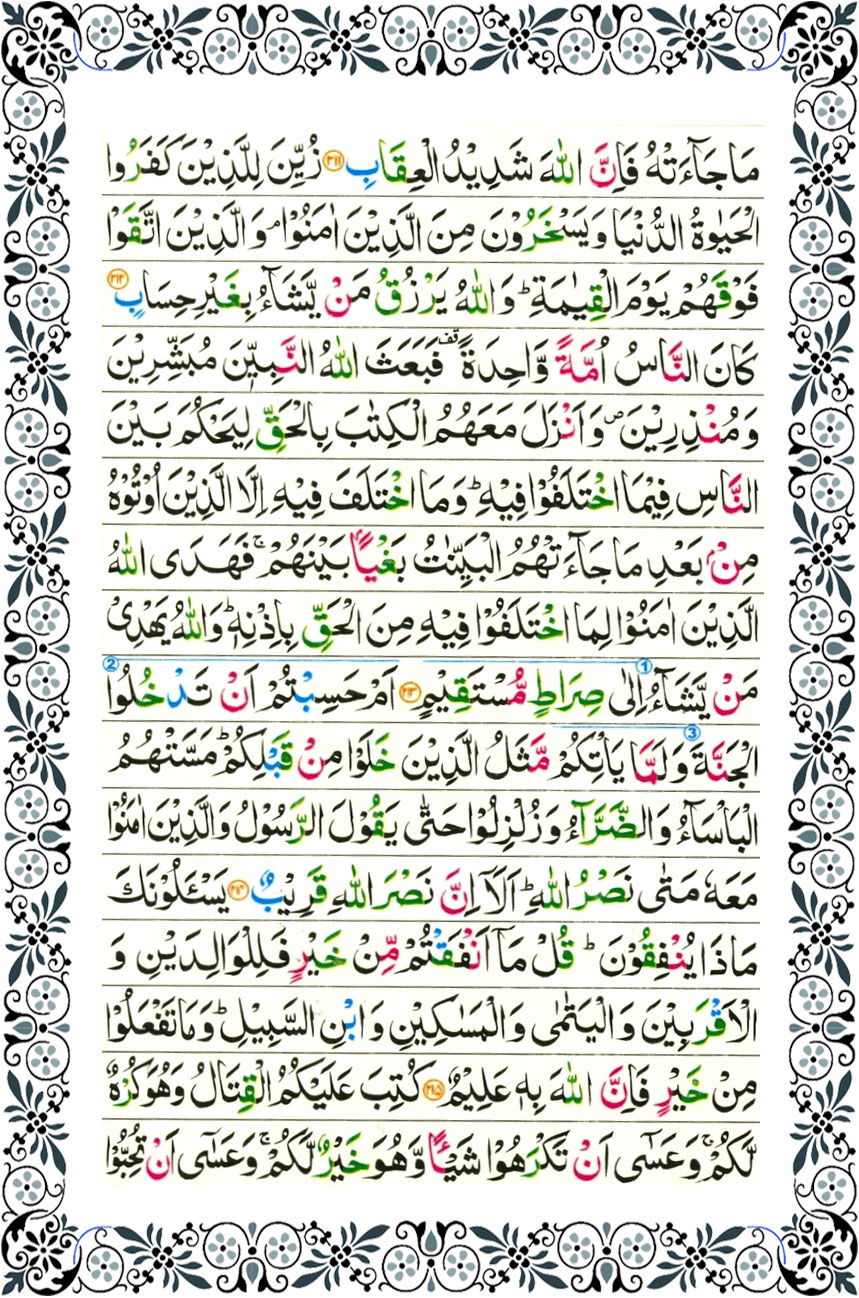 مَا جَآءَتْهُ فَاِنَّ اللهَ شَدِيْدُ الْعِقَابِ ﴿٢١١﴾ زُيِّنَ لِلَّذِيْنَ كَفَرُوا
الْحَيٰوةُ الدُّنْيَا وَيَسْخَرُوْنَ مِنَ الَّذِيْنَ اٰمَنُوْا ۘ وَالَّذِيْنَ اتَّقَوْا
فَوْقَهُمْ يَوْمَ الْقِيٰمَةِ ؕ وَاللهُ يَرْزُقُ مَنْ يَّشَآءُ بِغَيْرِ حِسَابٍ ﴿٢١٢﴾
كَانَ النَّاسُ اُمَّةً وَّاحِدَةً قف فَبَعَثَ اللهُ النَّبِيّٖنَ مُبَشِّرِيْنَ
وَمُنْذِرِيْنَ ص وَاَنْزَلَ مَعَهُمُ الْكِتٰبَ بِالْحَقِّ لِيَحْكُمَ بَيْنَ
النَّاسِ فِيْمَا اخْتَلَفُوْا فِيْهِ ؕ وَمَا اخْتَلَفَ فِيْهِ اِلَّا الَّذِيْنَ اُوْتُوْهُ
مِنْۢ بَعْدِ مَا جَآءَتْهُمُ الْبَيِّنٰتُ بَغْيًاۢ بَيْنَهُمْ ۚ فَهَدَى اللهُ
الَّذِيْنَ اٰمَنُوْا لِمَا اخْتَلَفُوْا فِيْهِ مِنَ الْحَقِّ بِاِذْنِهٖ ؕ وَاللهُ يَهْدِيْ
مَنْ يَّشَآءُ اِلٰى صِرَاطٍ مُّسْتَقِيْمٍ ﴿٢١٣﴾ اَمْ حَسِبْتُمْ اَنْ تَدْخُلُوا
الْجَنَّةَ وَلَمَّا يَاْتِكُمْ مَّثَلُ الَّذِيْنَ خَلَوْا مِنْ قَبْلِكُمْ ؕ مَسَّتْهُمُ
الْبَاْسَآءُ وَالضَّرَّآءُ وَزُلْزِلُوْا حَتّٰى يَقُوْلَ الرَّسُوْلُ وَالَّذِيْنَ اٰمَنُوْا
مَعَهٗ مَتٰى نَصْرُ اللهِ ؕ اَلَاۤ اِنَّ نَصْرَ اللهِ قَرِيْبٌ ﴿٢١٤﴾ يَسْـَٔلُوْنَكَ
مَاذَا يُنْفِقُوْنَ ؕ قُلْ مَاۤ اَنْفَقْتُمْ مِّنْ خَيْرٍ فَلِلْوَالِدَيْنِ وَ
الْاَقْرَبِيْنَ وَالْيَتٰمٰى وَالْمَسٰكِيْنِ وَابْنِ السَّبِيْلِ ؕ وَمَا تَفْعَلُوْا
مِنْ خَيْرٍ فَاِنَّ اللهَ بِهٖ عَلِيْمٌ ﴿٢١٥﴾ كُتِبَ عَلَيْكُمُ الْقِتَالُ وَهُوَ كُرْهٌ
لَّكُمْ ۚ وَعَسٰۤى اَنْ تَكْرَهُوْا شَيْـًٔا وَّهُوَ خَيْرٌ لَّكُمْ ۚ وَعَسٰۤى اَنْ تُحِبُّوْا